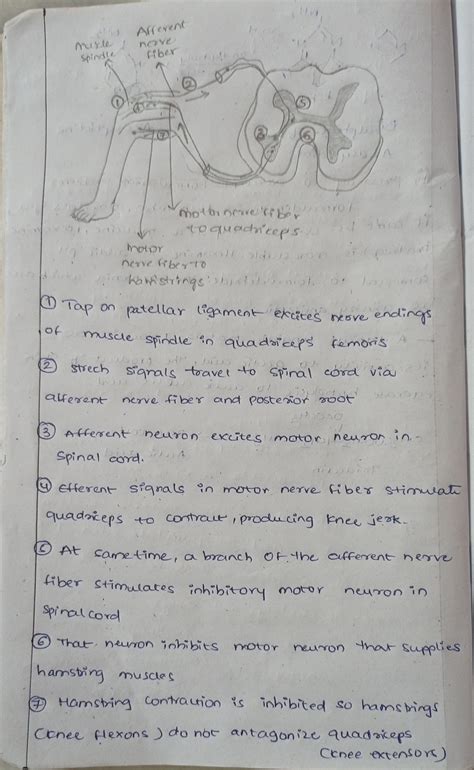 Afferent
nerve
fiber
muscle
spindle
①
②
④
⑦
⑤
③
⑥
motor nerve fiber
to quadriceps
motor
nerve fiber to
hamstrings
① Tap on patellar ligament excites nerve endings
of muscle spindle in quadriceps femoris
② strech signals travel to spinal cord via
afferent nerve fiber and posterior root
③ Afferent neuron excites motor neuron in
spinal cord.
④ Efferent signals in motor nerve fiber stimulate
quadriceps to contract, producing knee jerk.
⑤ At same time, a branch of the afferent nerve
fiber stimulates inhibitory motor neuron in
spinal cord
⑥ That neuron inhibits motor neuron that supplies
hamstring muscles
⑦ Hamstring contraction is inhibited so hamstrings
(knee flexons) do not antagonize quadriceps
(knee extensors)